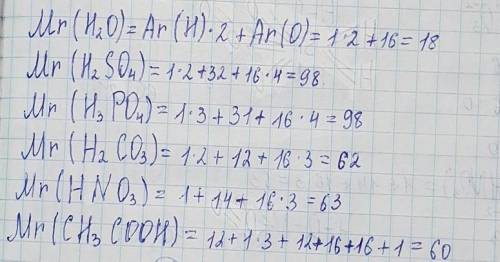 Mr(H₂O) = Ar(H)·2 + Ar(O) = 1·2 + 16 = 18
Mr(H₂SO₄) = 1·2 + 32 + 16·4 = 98
Mr(H₃PO₄) = 1·3 + 31 + 16·4 = 98
Mr(H₂CO₃) = 1·2 + 12 + 16·3 = 62
Mr(HNO₃) = 1 + 14 + 16·3 = 63
Mr(CH₃COOH) = 12 + 1·3 + 12 + 16 + 16 + 1 = 60